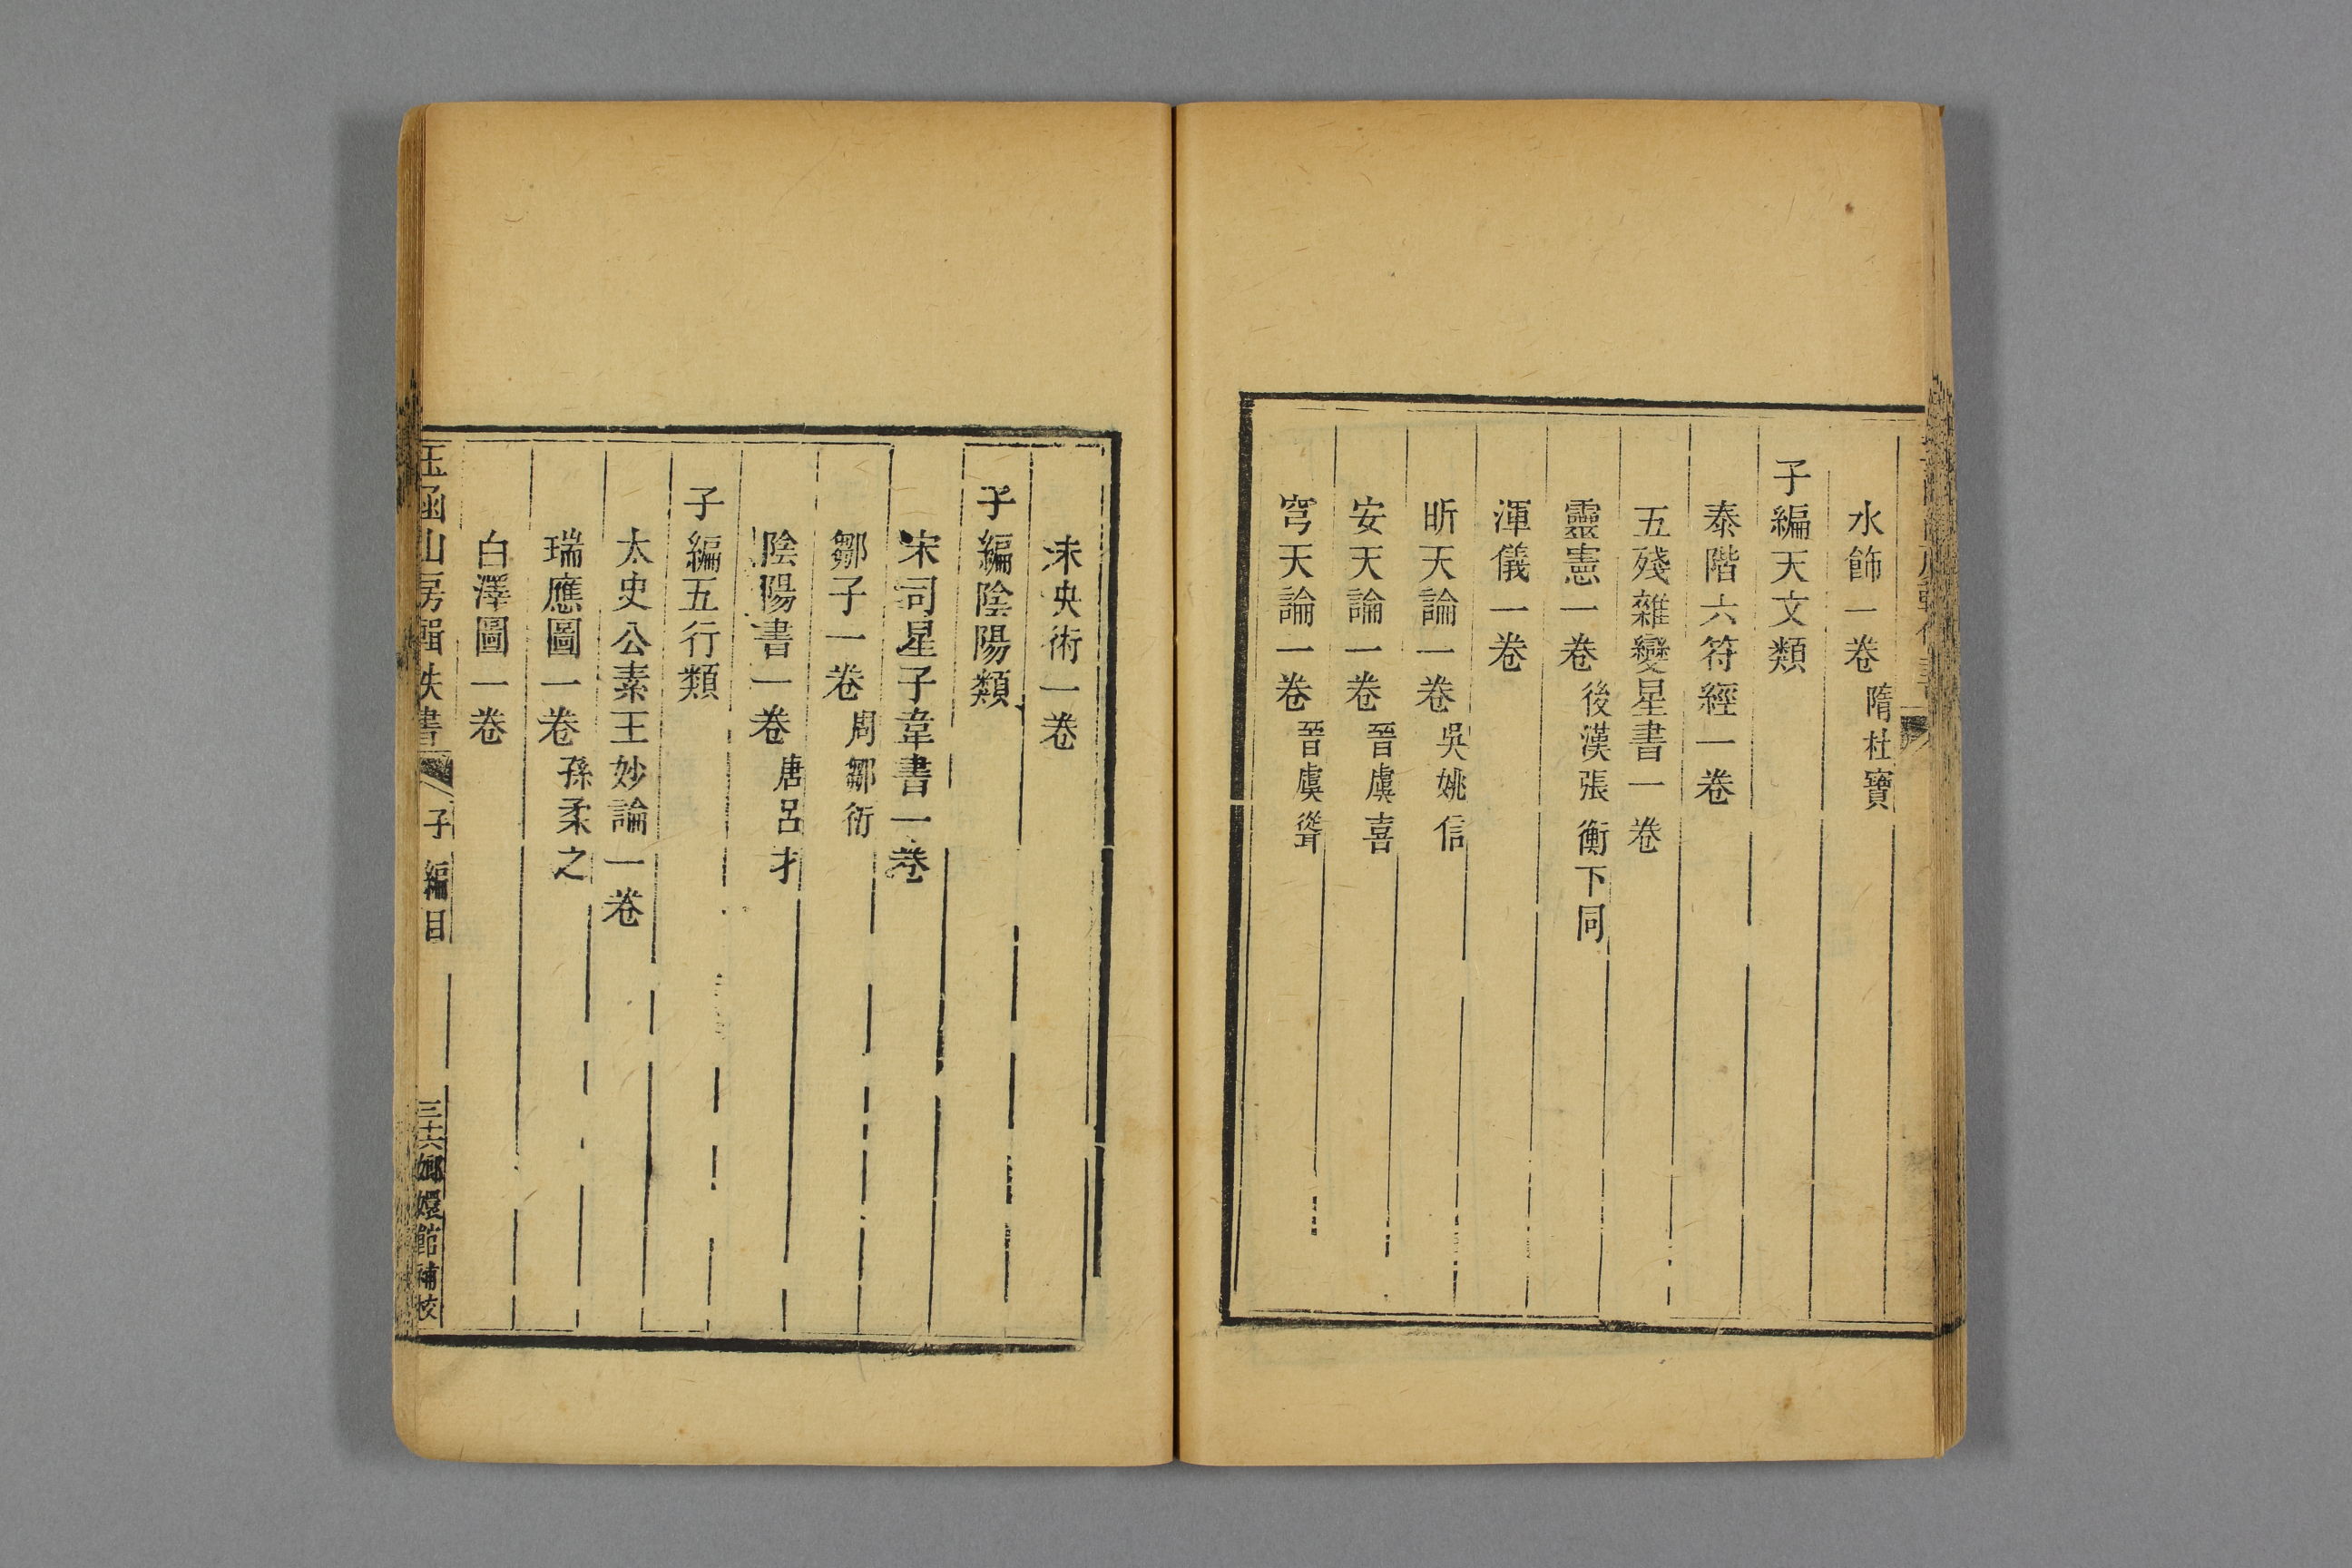 水飾一卷 隋杜寶
子編天文類
泰階六符經一卷
五殘雜變星書一卷
靈憲一卷 後漢張衡下同
渾儀一卷
昕天論一卷 吳姚信
安天論一卷 晉虞喜
穹天論一卷 晉虞聳
未央術一卷
子編陰陽類
宋司星子韋書一卷
鄒子一卷 周鄒衍
陰陽書一卷 唐呂才
子編五行類
太史公素王妙論一卷
瑞應圖一卷 孫柔之
白澤圖一卷
玉函山房輯佚書 子編目 三十六 嫏嬛館補校